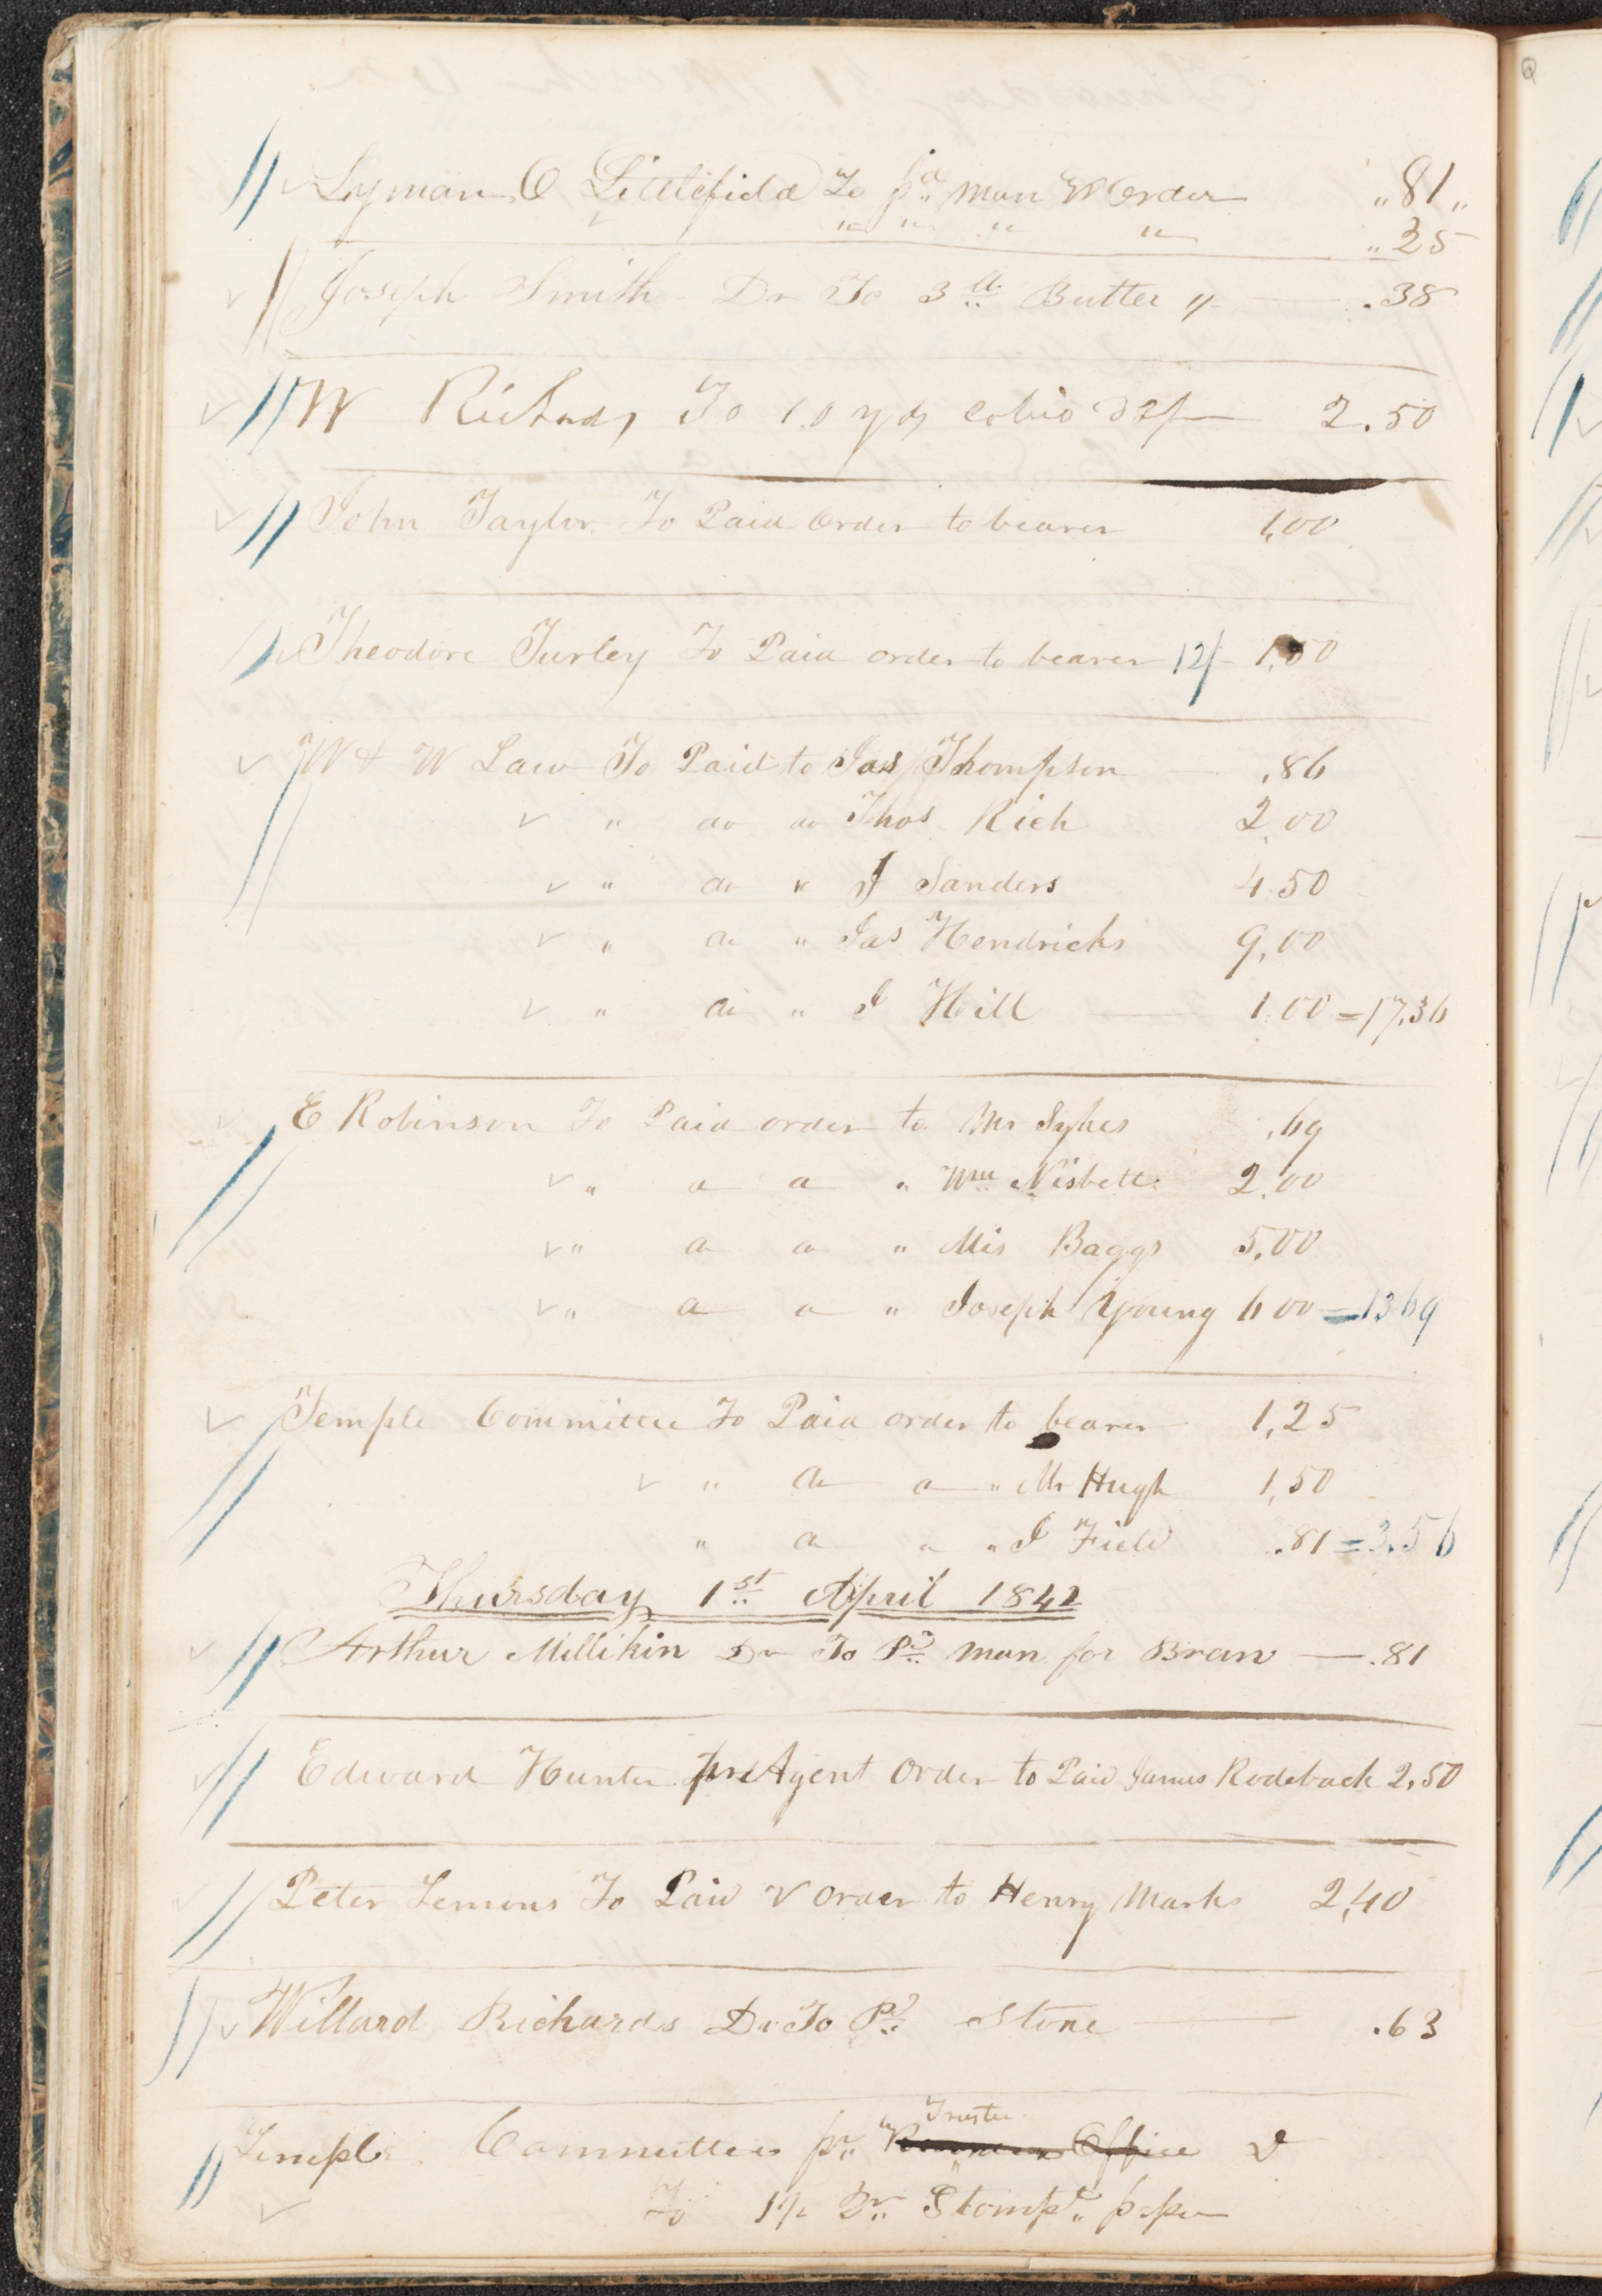 Lyman O Littlefield To pd man pr Order "81"
" " " " "25
Joseph Smith Dr To 3 lb Butter "- .38
W Richards To 10 yds calico 2/- 2.50
John Taylor To Paid Order to bearer 1,00
Theodore Turley To Paid order to bearer 12/- 1,50
W & W Law To Paid to Jas Thompson .86
" do do Thos Rich 2,00
" do " J Sanders 4.50
" do " Jas Hendricks 9,00
" do " J Hill 1.00 =17.36
E Robinson To Paid order to Mr Sykes .69
" do do " Wm Nisbett 2.00
" do do " Mis Baggs 5,00
" do do " Joseph Young 6 00 =13.69
Temple Committee To Paid order to bearer 1,25
" do do " Mr Hugh 1,50
" do do " J Field .81 =3.56
Thursday 1st April 1842
Arthur Millikin Dr To Pd man for Bran — .81
Edward Hunter pr Agent Order to Paid James Rodeback 2.50
Peter Lemons To Paid Order to Henry Marks 2,40
Willard Richards Dr To Pd Stone .63
Trustee
Temple Committee pr Office
To Dr Stompd paper